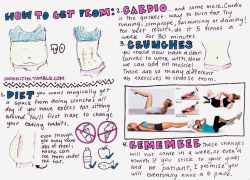 HOW TO GET FROM:
TO
2. CARDIO and some more. Cardio
is the quickest way to burn fat. Try
running, jumprope, fast running or dancing!
for best results, do it 5 times a
week for 30 minutes.
3. CRUNCHES
you should now have a clean
canvas to work with. Now
we can add on muscle!
There are so many different
type exercises to choose from.
1. DIET you wont magically get
a space from doing crunches all
day if you have excess fat sitting
around. You'll first have to change
your eating habits.
even though
you may have
abs at this
moment, you
can't see
them under
the fat.
4. REMEMBER These changes
will not come in a week, or even a
month. If you stick to your goal
and be patient, I promise you
will eventually get them.